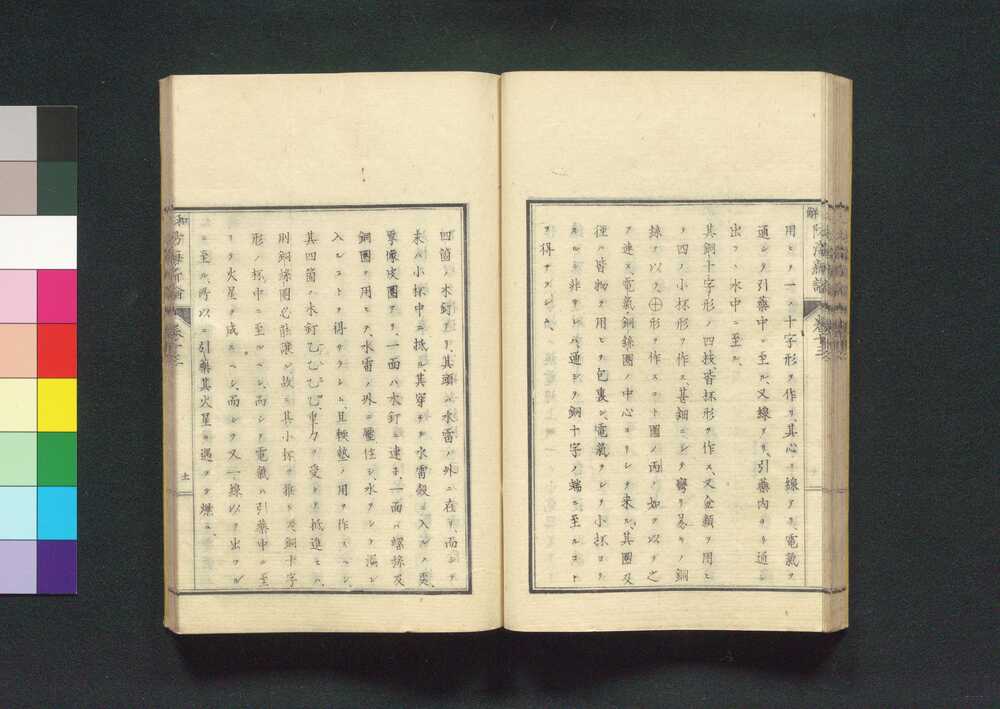 用ヒテ一ノ十字形ヲ作リ、其心ニ線アリ、電氣ヲ
通シテ引藥中ニ至ル、又線アリ、引藥内ヨリ通シ
出テ、水中ニ至ル、
其銅十字形ノ四枝、皆杯形ヲ作ス、又金類ヲ用ヒ
テ四ノ小杯形ヲ作ス、甚細ニシテ彎リ易キノ銅
線ヲ以テ㊉形ヲ作スコト圖ノ丙ノ如ク以テ之
ヲ連ス、電氣銅絲圈ノ中心ヨリシテ來ル、其圈及
徑ハ皆物ヲ用ヒテ包裏シ、電氣ヲシテ小杯ヨリ
スルニ非サレハ、通シテ銅十字ノ端ニ至ルコト
ヲ得サラシム、
四箇ノ木釘アリ、其頭ハ水雷ノ外ニ在リ、而シテ
末ハ小杯中ニ抵ル、其穿チテ水雷殼ニ入ルノ處、
象皮圈アリ、一面ハ木釘ニ連子、一面ハ螺絲及
銅圈ヲ用ヒテ、水雷ノ外ニ壓住シ、水ヲシテ漏シ
入レコトヲ得サラシム、且軟墊ノ用ヲ作スヘシ、
其四箇ノ木釘乙乙乙乙、重力ヲ受ケテ抵進セハ、
則銅絲圈必能讓ル、故ニ其小杯ヲ推シテ、銅十字
形ノ杯中ニ至ルヘシ、而シテ電氣ハ引藥中ニ至
リテ火星ヲ成スヘシ、而シテ又一線以テ出テル
ニ至ル、所以ニ引藥其火星ニ遇フテ燃ユ、